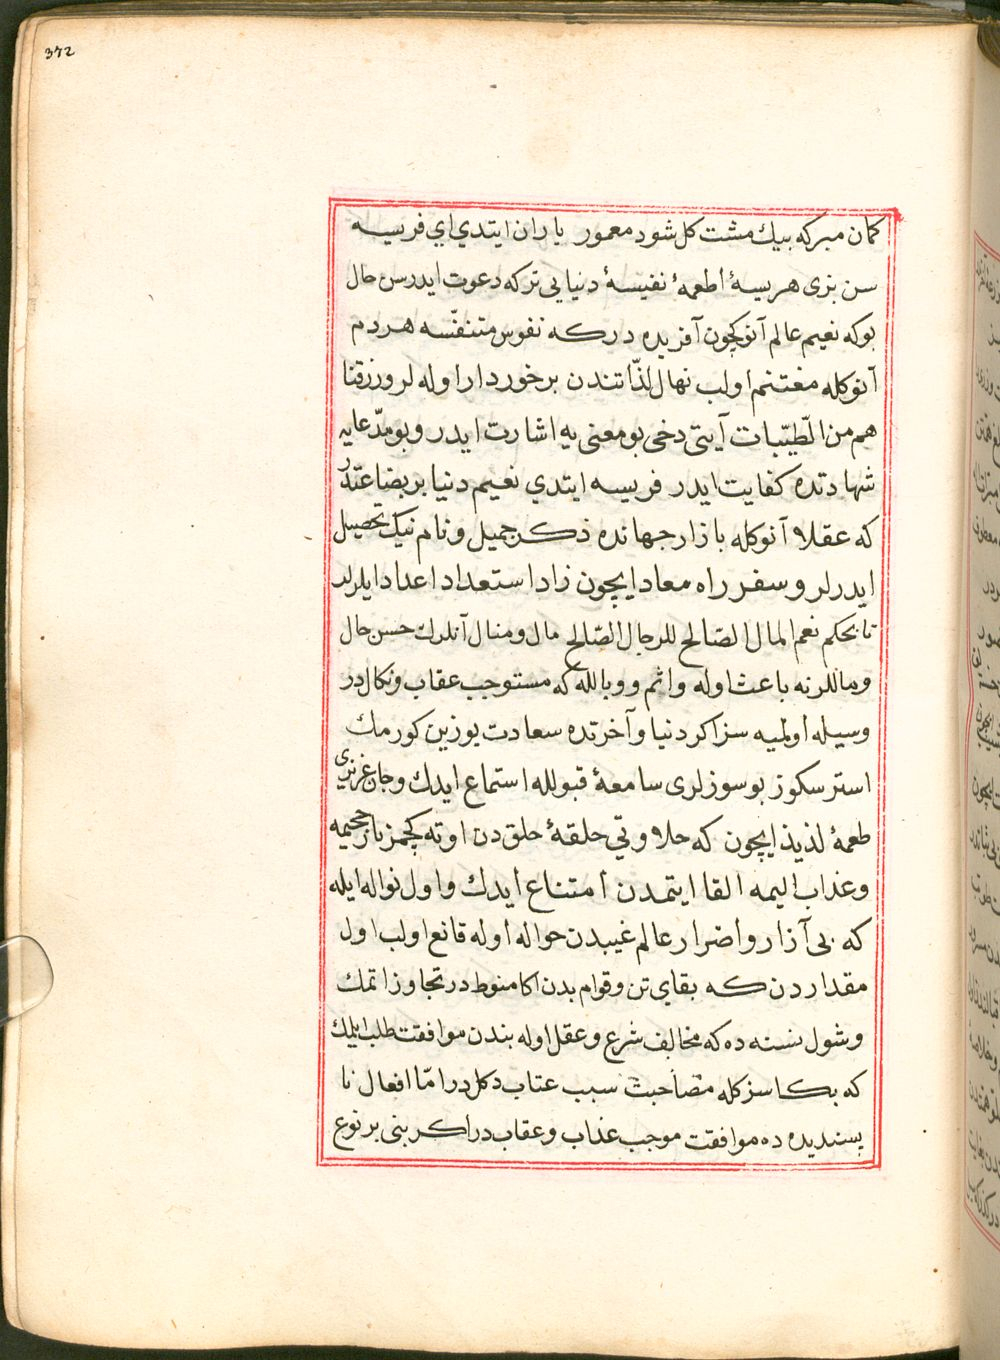 372
كمان مبركه بيك مشت كل شود معمور ياران ايتدي اي فريسه
سن بزى هريسهٔ أطعمهٔ نفيسهٔ دنيايى تركه دعوت ايدرسن حال
بوكه نعيم عالم آنوكچون آفريده دركه نفوس متنفّسه هردم
آنوكله مغتنم اولب نهال لذّاتندن برخوردار اوله لر ورزقنا
هم من الطّيّبات آيتى دخى بو معنى يه اشارت ايدر وبو مدّعايه
شهادتده كفايت ايدر فريسه ايتدي نعيم دنيا بر بضاعتدر
كه عقلا آنوكله بازار جهانده ذكر جميل ونام نيك تحصيل
ايدرلر وسفر راه معاد ايچون زاد استعداد اعداد ايلرلر
تا بحكم نعم المال الصّالح للرجال الصّالح مال ومنال آنلرك حسن حال
ومآللرنه باعث اوله واثم ووبالله كه مستوجب عقاب ونكالدر
وسيله أولميه سز اكر دنيا وآخرتده سعادت يوزين كورمك
استرسكوز بو سوزلرى سامعهٔ قبولله استماع ايدك وجان عزيزى
طعمهٔ لذيذ ايچون كه حلاوتي حلقهٔ حلق دن اوته كچمز نار جحيمه
وعذاب اليمه القا ايتمدن أمتناع أيدك واول نواله ايله
كه بى آزار واضرار عالم غيبدن حواله أوله قانع اولب اول
مقداردن كه بقاي تن وقوام بدن اكا منوطدر تجاوز اتمك
وشول نسنه ده كه مخالف شرع وعقل اوله بندن موافقت طلب ايلمك
كه بكا سزكله مصاحبت سبب عتاب دكلدر امّا افعال نا
پسنديده ده موافقت موجب عذاب وعقابدر اكر بنى بر نوع